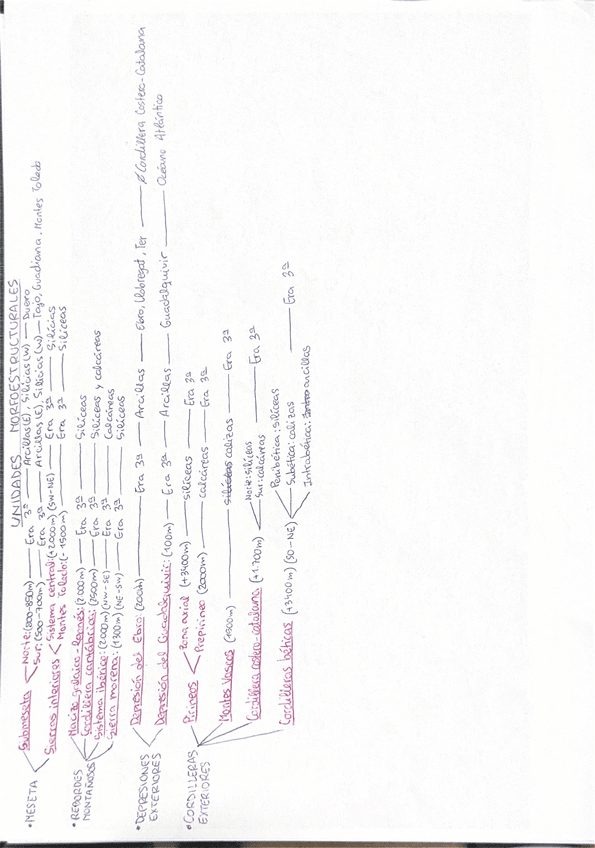 UNIDADES MORFOESTRUCTURALES
• MESETA
Submeseta
Norte: (800-850m) — Era 3ª — Arcillas (E), Silíceas (W) — Duero
Sur: (500-700m) — Era 3ª — Arcillas (E), Silíceas (W) — Tajo, Guadiana, Montes Toledo
Sierras interiores
Sistema central: (+2000m) (SW-NE) — Era 3ª — Silíceas
Montes Toledo: (-1500m) — Era 3ª — Silíceas
• REBORDES MONTAÑOSOS
Macizo galaico-leonés: (2000m) — Era 3ª — Silíceas
Cordillera cantábrica: (2500m) — Era 3ª — Silíceas y calcáreas
Sistema ibérico: (2000m) (NW-SE) — Era 3ª — Calcáreas
Sierra morena: (1300m) (NE-SW) — Era 3ª — Silíceas
• DEPRESIONES EXTERIORES
Depresión del Ebro: (200m) — Era 3ª — Arcillas — Ebro, Llobregat, Ter — Cordillera Costero-Catalana
Depresión del Guadalquivir: (100m) — Era 3ª — Arcillas — Guadalquivir — Océano Atlántico
• CORDILLERAS EXTERIORES
Pirineos
Zona axial (+3400m) — silíceas — Era 3ª
Prepirineo (2000m) — calcáreas — Era 3ª
Montes Vascos (1500m) — silíceas calizas — Era 3ª
Cordillera costero-catalana (+1.700m)
Norte: silíceas
Sur: calcáreas
Era 3ª
Cordilleras béticas (+3400m) (SO-NE)
Penibética: silíceas
Subética: calizas
Intrabética: arcillas
Era 3ª